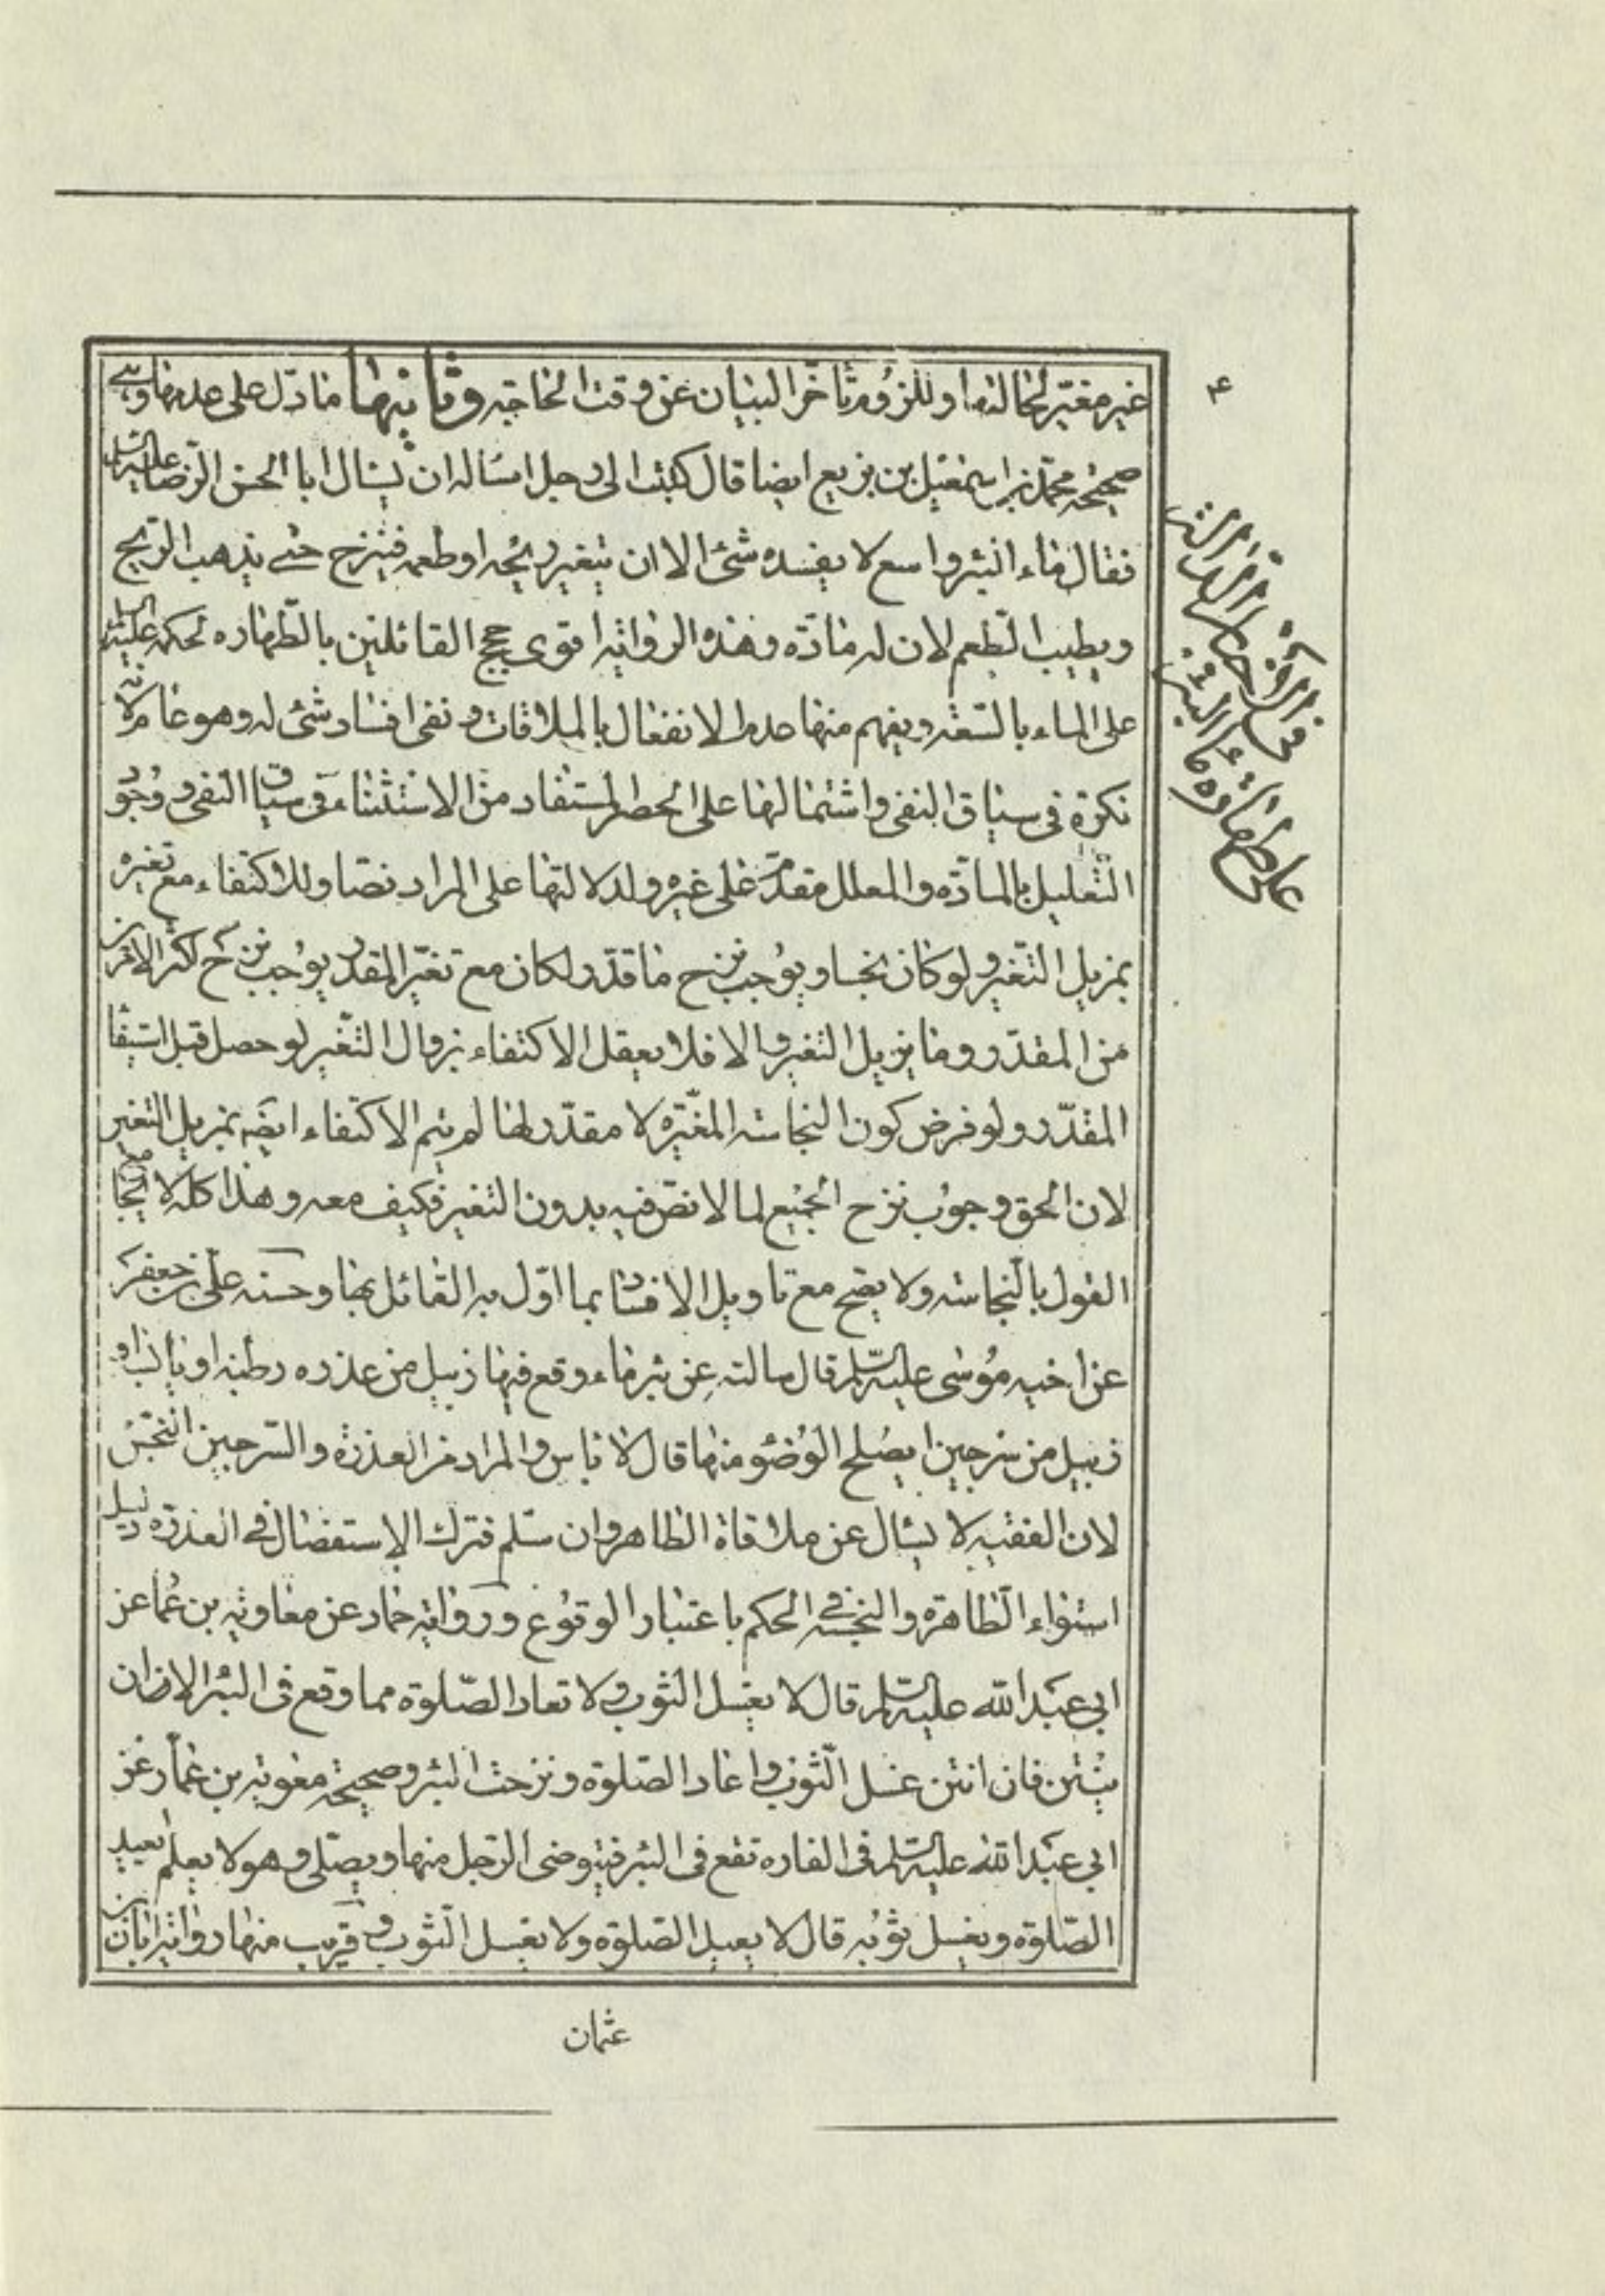 ٤
غير مغيّر لحالتها وللزوم تأخّر البيان عن وقت الحاجة وثانيها ما دلّ على عدمها وهي
صحيحة محمّد بن اسمعيل بن بزيع ايضا قال كتبت الى رجل اسئاله ان يسئال ابا الحسن الرّضا عليه السّلم
فقال ماء البئر واسع لا يفسده شئ الا ان يتغير ريحه او طعمه فينزح حتى يذهب الرّيح
ويطيب الطّعم لان له مادّة وهذه الرواية اقوى حجج القائلين بالطّهاره لحكمه عليه السلم
على الماء بالسّعة ويفهم منها عدم الانفعال بالملاقات ونفى افساد شئ له وهو عام لانه
نكرة في سياق النفى واشتمالها على الحصر المستفاد من الاستثناء في سياق النفى ووجود
التّعليل بالمادّه والمعلل مقدّم على غيره ولدلالتها على المراد نصّا وللاكتفاء مع تغيره
بمزيل التّغير ولو كان نجسا ويوجب نزح ما قدّر لكان مع تغيّر المقدر يوجب نزح اكثر الامرين
من المقدّر وما يزيل التغير والا فلا يعقل الاكتفاء بزوال التّغير لو حصل قبل استيفا
المقدّر ولو فرض كون النجاسة المغيّره لا مقدّر لها لم يتم الاكتفاء ايضه بمزيل التغير
لان الحق وجوب نزح الجميع لما لا نصّ فيه بدون التغير فكيف معه وهذا كله لا يجامع
القول بالنّجاسة ولا يصح مع تاويل الافساد بما اوّل به القائل بها وحسنة علي بن جعفر
عن اخيه موسى عليه السّلم قال سالته عن بئر ماء وقع فيها زبيل من عذره رطبه او يابسه او
زبيل من سرجين ايصلح الوضوء منها قال لا باس والمراد من العذرة والسّرجين النّجس
لان الفقيه لا يسئال عن ملاقاة الطاهر وان سلم فترك الاستفصال في العذره دليل
استواء الطّاهرة والنجسة في الحكم باعتبار الوقوع ورواية حماد عن معاوية بن عمار عن
ابي عبد الله عليه السّلم قال لا يغسل الثوب ولا تعاد الصّلوة مما وقع في البئر الا ان
ينتن فان انتن غسل الثّوب واعاد الصّلوة ونزحت البئر وصحيحة معوية بن عمّار عن
ابي عبد الله عليه السّلم في الفاره تقع في البئر فيتوضى الرّجل منها ويصلّى وهو لا يعلم ايعيد
الصّلوة ويغسل ثوبه قال لا يعيد الصّلوة ولا يغسل الثّوب وقريب منها رواية ابان بن
عثمان